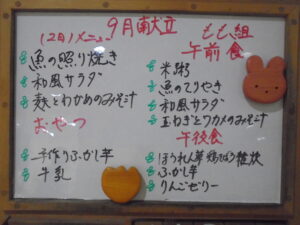 9月献立
(2日)メニュー
魚の照り焼き
和風サラダ
麩とわかめのみそ汁
おやつ
手作りふかし芋
牛乳
もも組
午前食
米粥
魚のてりやき
和風サラダ
玉ねぎとワカメのみそ汁
午後食
ほうれん草 鶏そぼろ雑炊
ふかし芋
りんごゼリー